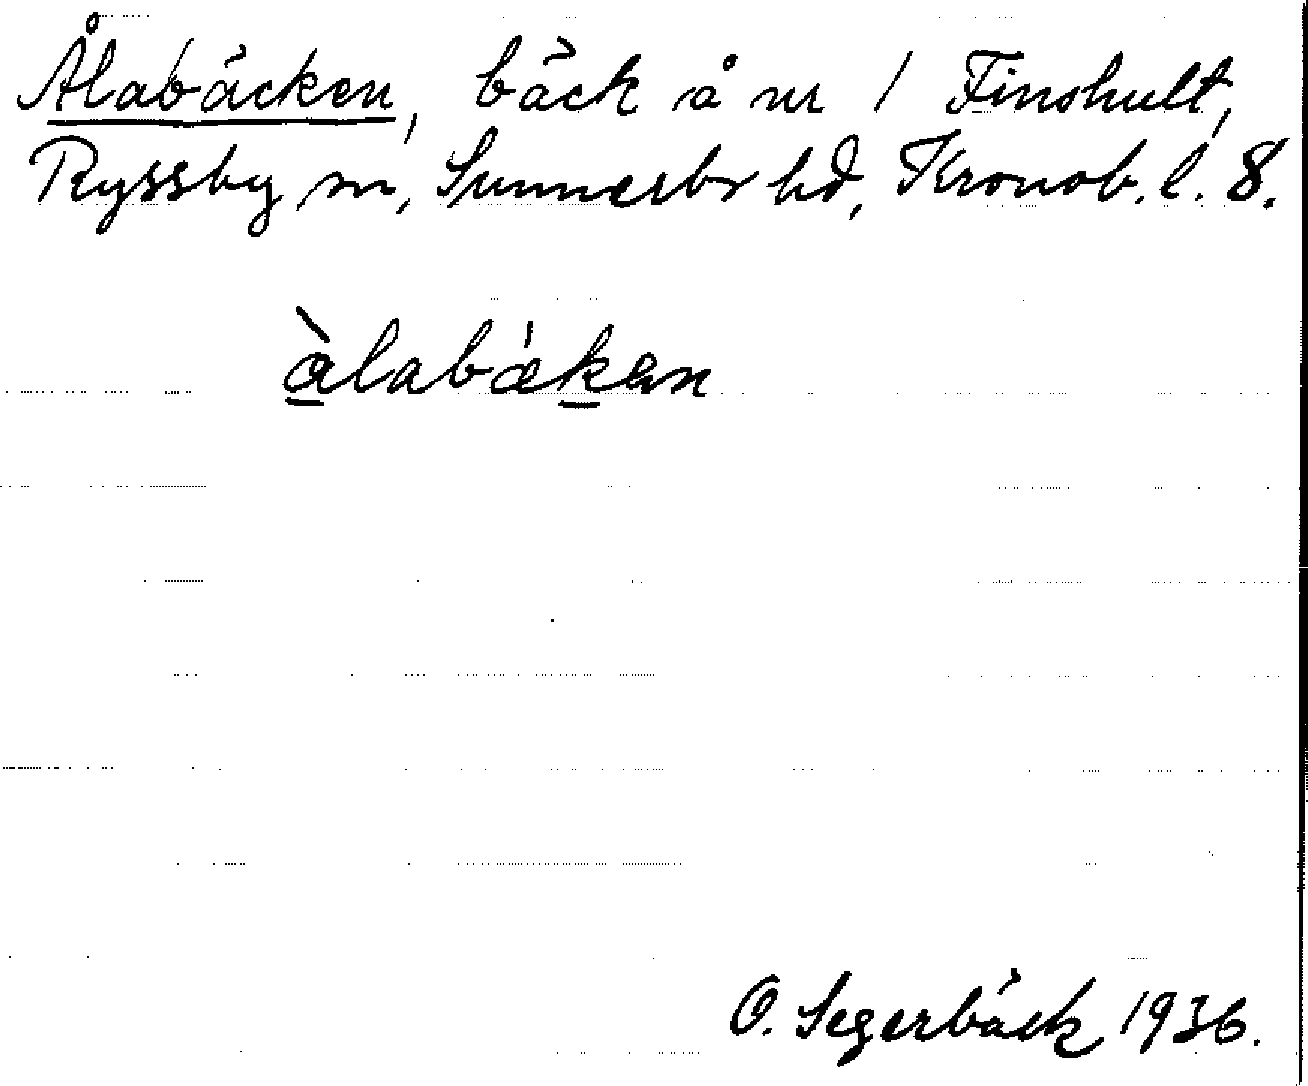 Ålabäcken, bäck å nr 1 Finshult,
Ryssby sn, Sunnerbo hd, Kronob. l. 8.
àlabäkən
O. Segerbäck 1936.